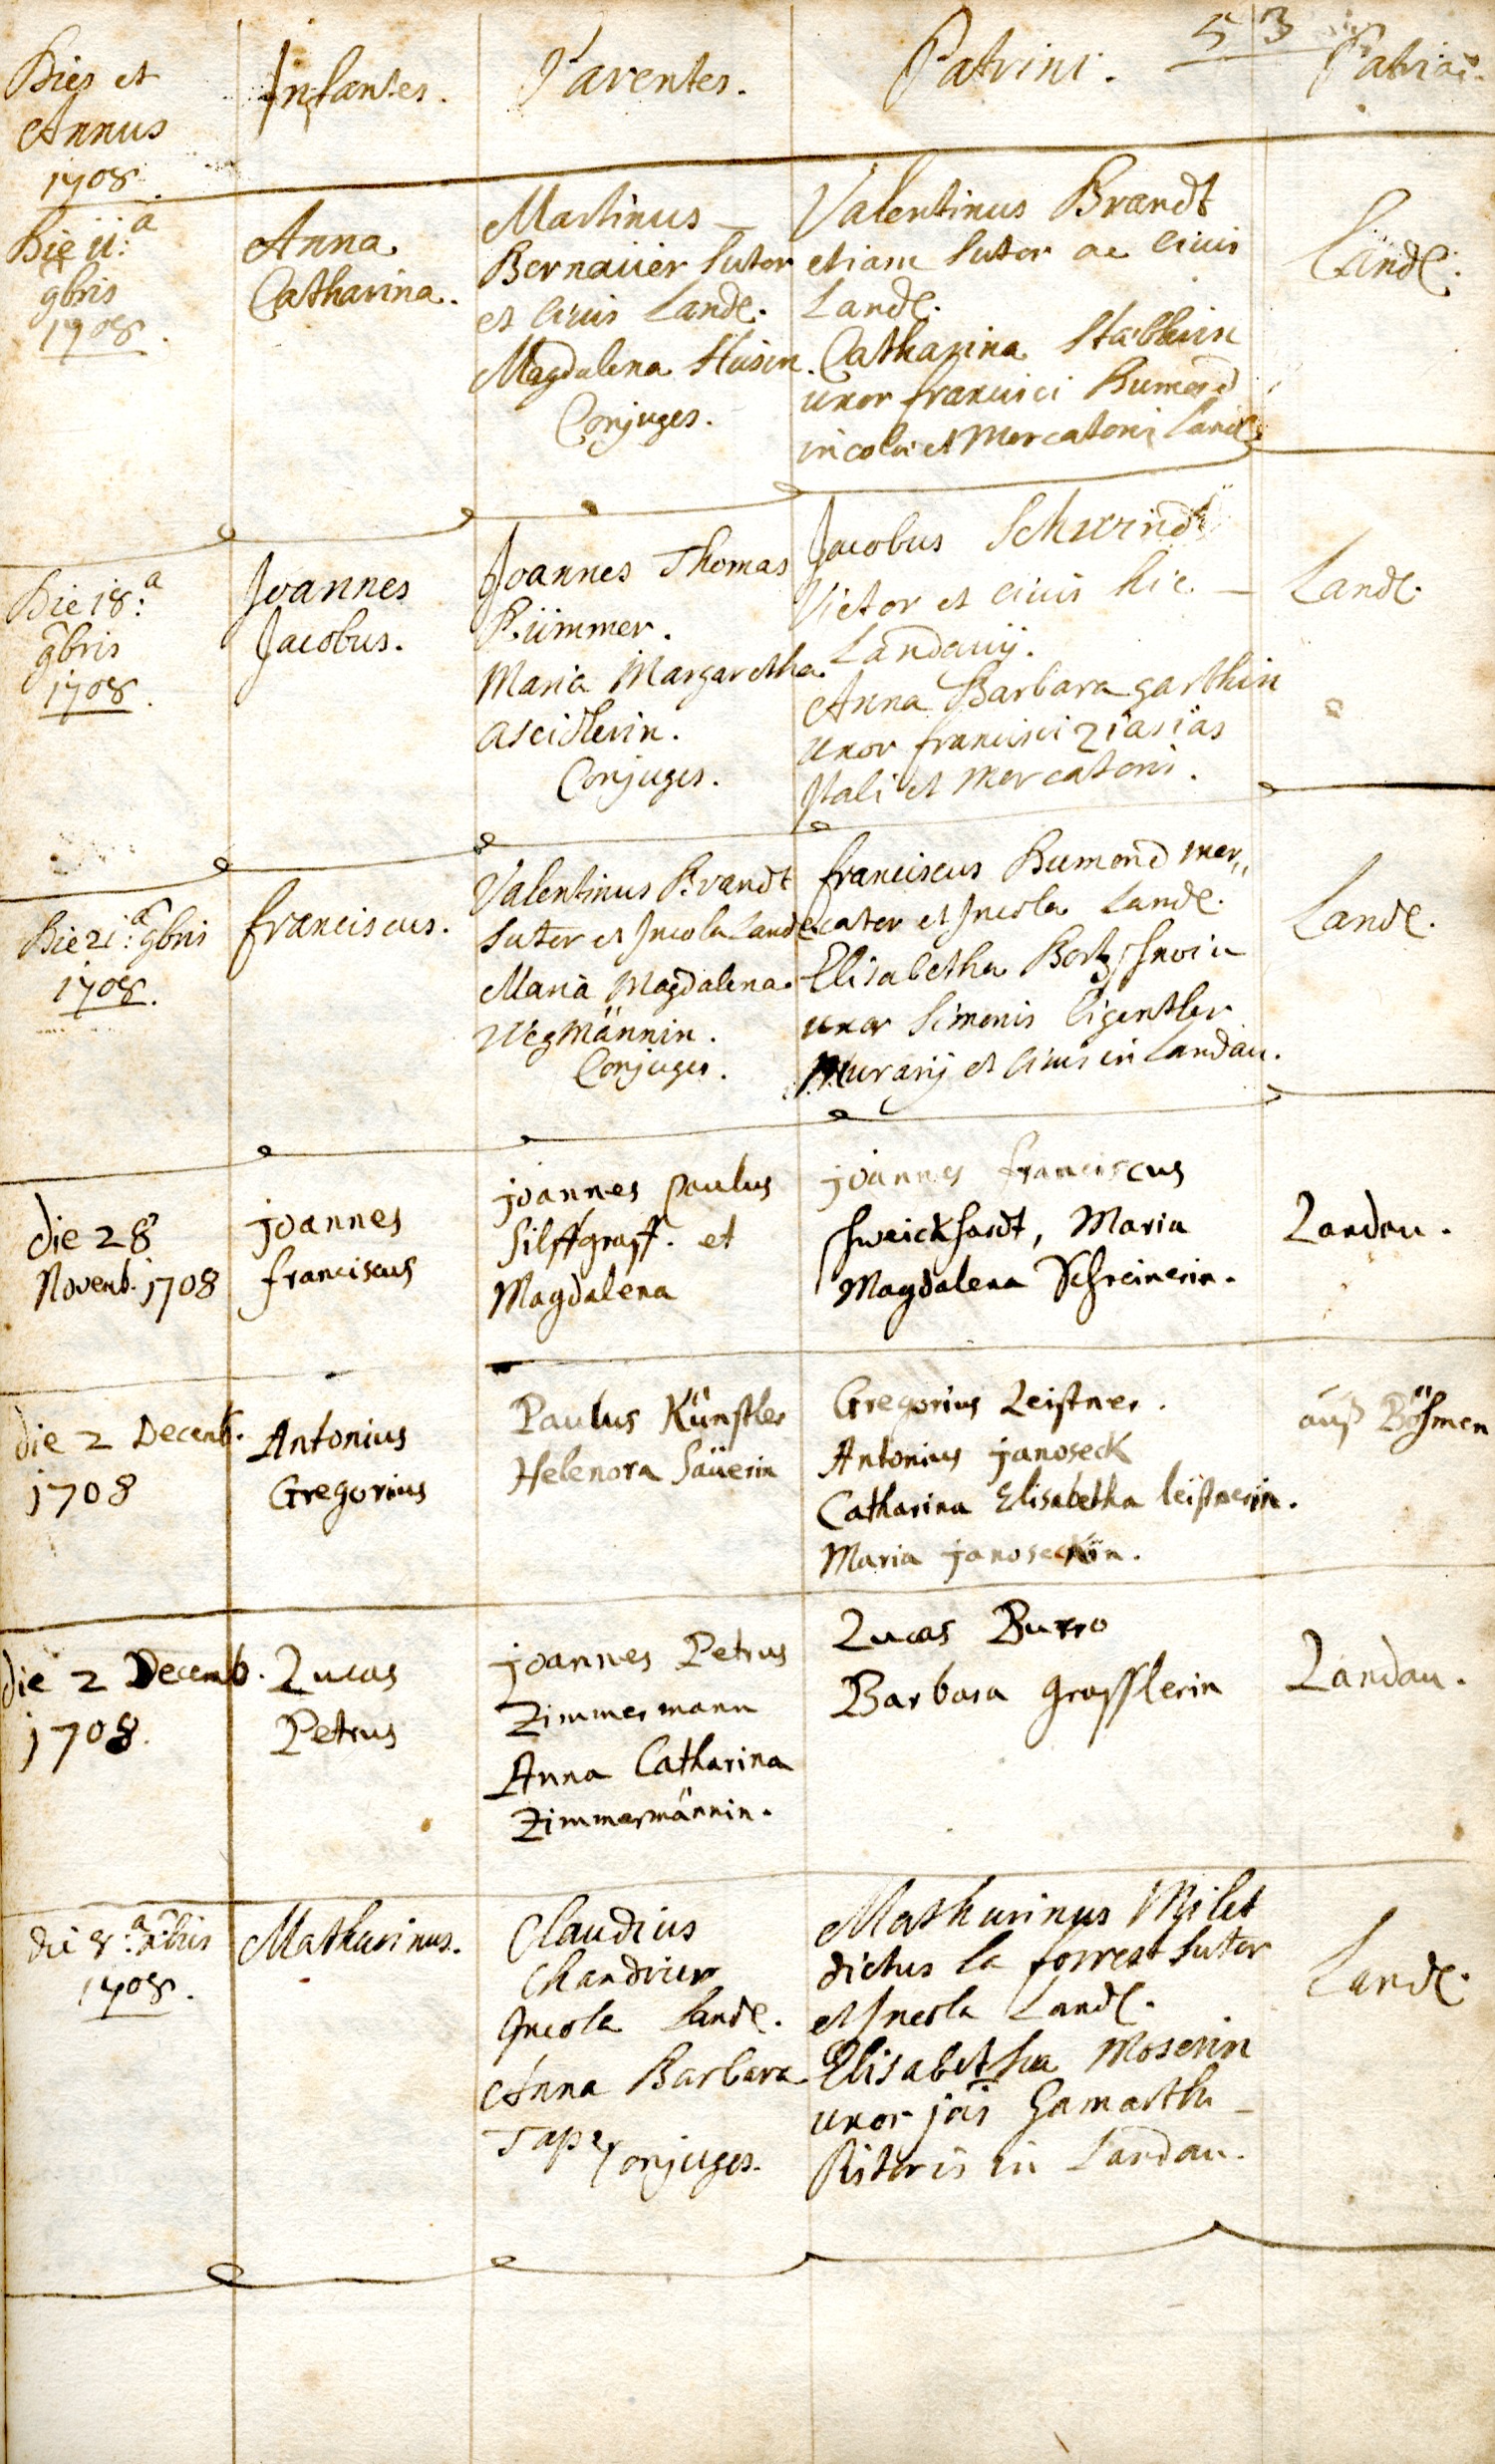 53
Dies et
Annus
1708
Infantes.
Parentes.
Patrini.
Patria.
Die 11:a
9bris
1708.
Anna
Catharina.
Martinus
Bernauer Sutor
et civis Land.
Magdalena
Conjuges.
Valentinus Brandt
etiam Sutor ac civis
Land.
Catharina
uxor francisci Bumond
incolæ et Mercatoris Land.
Land.
Die 18:a
9bris
1708.
Joannes
Jacobus.
Joannes Thomas
Kümmer.
Maria Margaretha
Conjuges.
Jacobus Schwind
Vietor et civis hic
Landavij.
Anna Barbara garthin
uxor francisci
Itali et Mercatoris.
Land.
Die 21:a 9bris
1708.
franciscus.
Valentinus Brandt
Sutor et Incola Land.
Maria Magdalena
Wegmännin.
Conjuges.
franciscus Bumond mer„
cator et Incola Land.
Elisabetha
uxor Simonis
Murarij et civis in Landau.
Land.
die 28
Novemb. 1708
joannes
franciscus
joannes paulus
Silffgraff. et
Magdalena
joannes franciscus
Schweickhardt, Maria
Magdalena Schreinerin.
Landau.
die 2 Decemb.
1708
Antonius
Gregorius
Paulus Künstler
Helenora Säuerin
Gregorius Leistner.
Antonius janoseck
Catharina Elisabetha leistnerin.
Maria janoseckin.
auß Böhmen
die 2 Decemb.
1708.
Lucas
Petrus
joannes Petrus
Zimmermann
Anna Catharina
Zimmermännin.
Lucas Burro
Barbara grafflerin
Landau.
die 8:a xbris
1708.
Mathurinus.
Claudius
Chandrier
Incola Land.
Anna Barbara
Conjuges.
Mathurinus Milet
dictus la forrest Sutor
et Incola Land.
Elisabetha Moserin
uxor jois Gamarth
Pistoris in Landau.
Land.